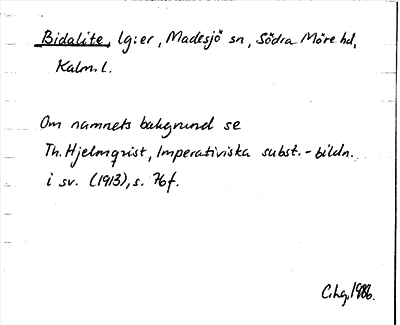 Bidalite, lg:er, Madesjö sn, Södra Möre hd,
Kalm. l.
Om namnets bakgrund se
Th. Hjelmqvist, Imperativiska subst.-bildn.
i sv. (1913), s. 76f.
1986.